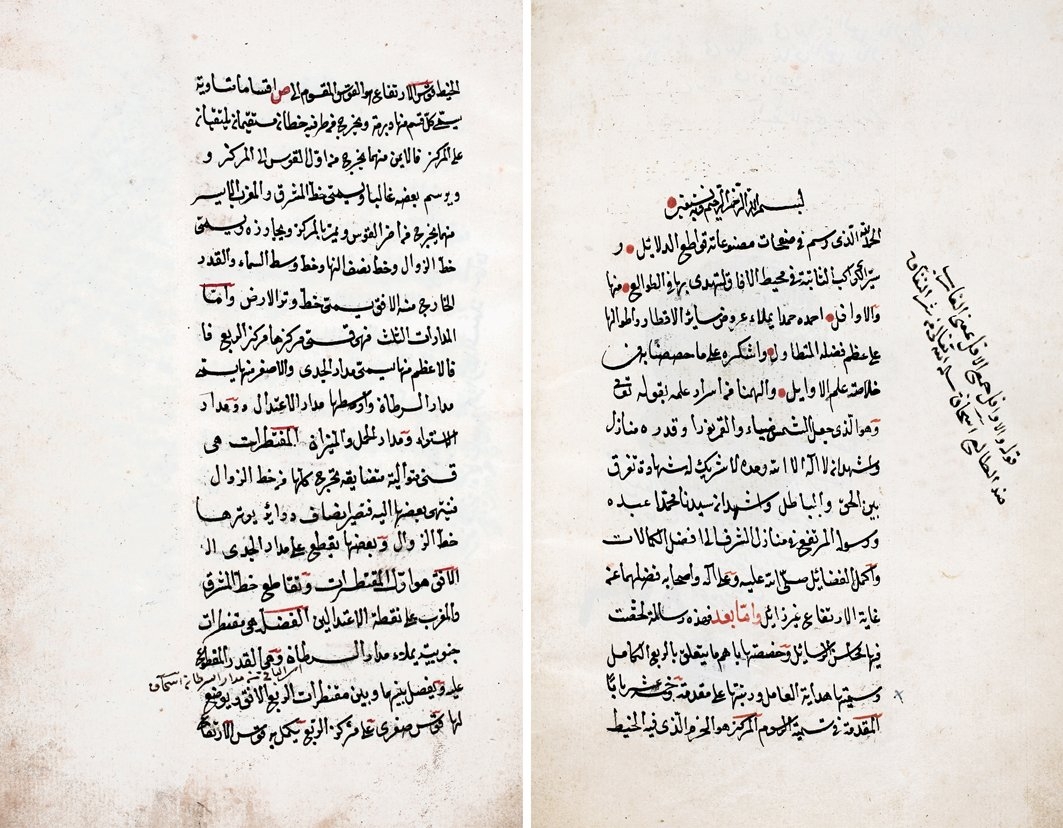 بسم الله الرحمن الرحيم وبه نستعين
الحمد لله الذى وسم فى صفحات مصنوعاته قواطع الدلايل و
سيّر الكواكب الثابتة فى محيط الافاق ليهتدى بها فى الطوالع منها
والاوافل احمده حمدا يملاء عروض ساير الاقطار واطوالها
على عظم فضله المتطاول واشكره على ما خصصنا به من
خلاصة علم الاوايل والهمنا من اسرار علمه بقوله تعا
وهو الذى جعل الشمس ضياء والقمر نورا وقدره منازل
واشهد ان لا اله الا الله وحده لا شريك له شهادة تفرق
بين الحق والباطل واشهد ان سيدنا محمدا عبده
ورسوله المرتفع فى منازل الشرف الى افضل الكمالات
واكمل الفضايل صلى الله عليه وعلى آله واصحابه فضلهما عنه
غاية الارتفاع غير زايل وامّا بعد فهذه رسالة لخصت
فيها محاسن الرسايل وخصصتها باهم ما يتعلق بالربع الكامل
وسميتها هداية العامل ورتبتها على مقدمة وخمسة عشر بابًا
المقدمة فى تسمية الرسوم المركز هو الخرم الذى فيه الخيط
قوله والاوافل جمع الافل بمعنى الغارب
ضد الطالع اسحاق
الخيط قوس الارتفاع هو القوس المقوم الى ص اقساما متساوية
يسمى كل قسم منها درجة ويخرج من طرفيه خطان مستقيمان يلتقيان
على المركز فالايمن منهما يخرج من اول القوس الى المركز و
ويرسم بعضه غالبا ويسمى خط المشرق والمغرب والايسر
منهما يخرج من اخر القوس ويمر بالمركز ويجاوزه ويسمى
خط الزوال وخط نصف النهار وخط وسط السماء والقدر
الخارج منه الافق يسمى خط وتر الارض وامّا
المدارات الثلث فهى قسى مركزها مركز الربع فا
فالاعظم منها يسمى مدار الجدى والاصغر منها يسمى
مدار السرطان واوسطها مدار الاعتدال ومدار
الاستواء ومدار الحمل والميزان المقنطرات هى
قسى متوالية متضايقة تخرج كلها من خط الزوال
فينتهى بعضها اليه فتصير انصاف دواير يوترها
خط الزوال وبعضها يقطع على مدار الجدى الى
الافق هو اول المقنطرات وتقاطع خط المشرق
والمغرب على نقطة الاعتدالين الفضلة هى مقنطرات
جنوبية يملاء مدار السرطان وهى القدر المقطوع
اى الباقى من مدار السرطان اسحاق
عليه ويفصل بينها وبين مقنطرات الربع الافق ويوضع
لها قوس صغرى على مركز الربع يكمل به قوس الارتفاع